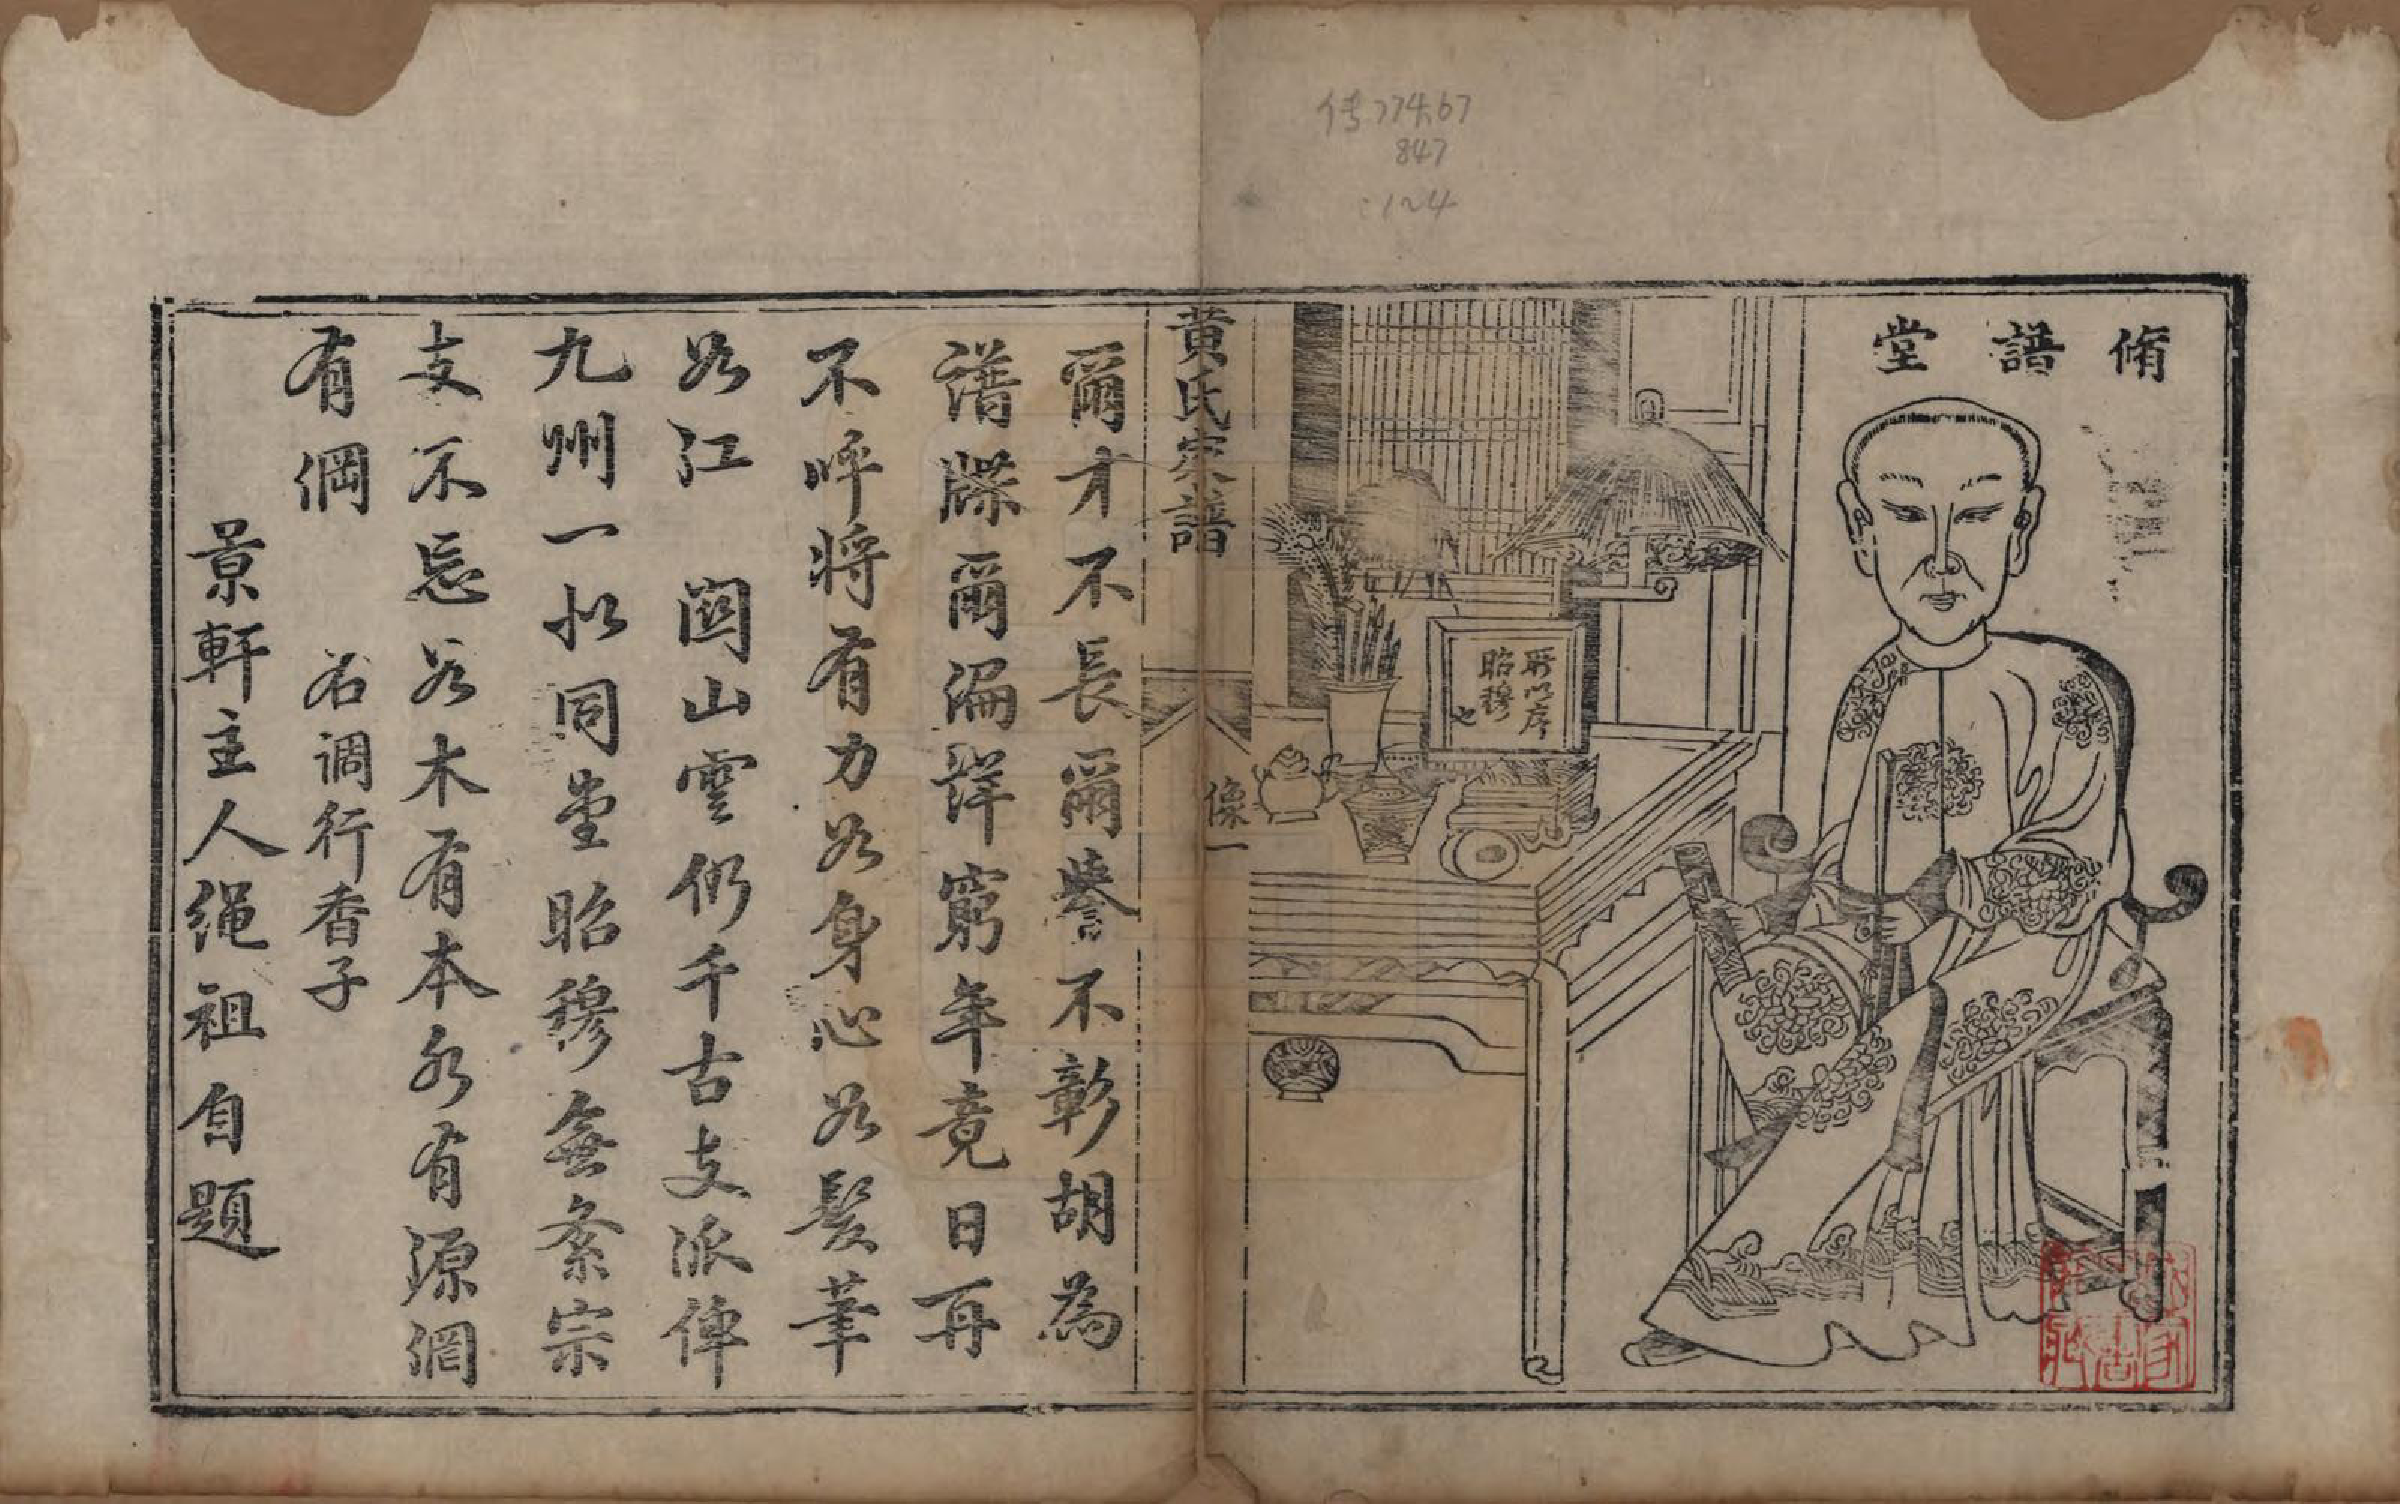 传774.67
847
:1~4
脩譜堂
所以序
昭穆
也
黄氏宗譜
像一
爾才不長爾譽不彰胡為
譜牒爾編詳窮年竟日再
不呼將有力如身心如髮筆
如江 関山雲仍千古支派俾
九州一似同堂昭穆無紊宗
支不忘如木有本水有源網
有綱 右調行香子
景軒主人绳祖自題